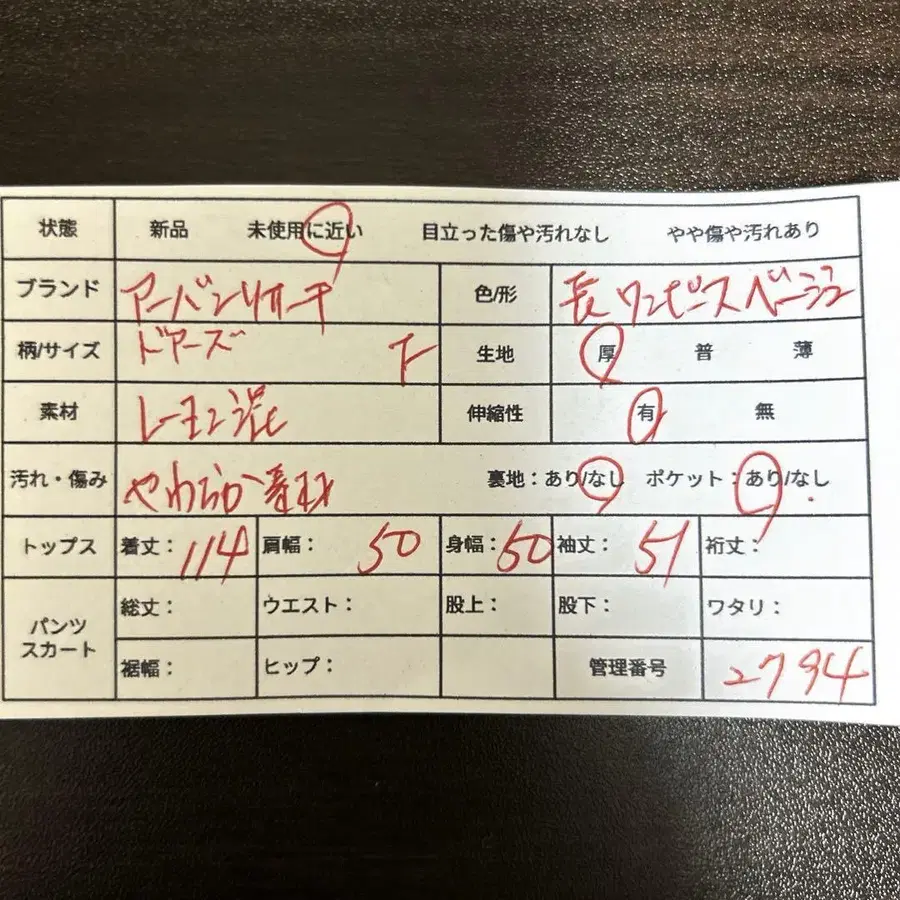 状態 新品 未使用に近い 目立った傷や汚れなし やや傷や汚れあり
ブランド アーバンリサーチ 色/形 長ワンピース ベージュ
柄/サイズ ドアーズ F 生地 厚 普 薄
素材 レーヨン混 伸縮性 有 無
汚れ・傷み やわらか素材 裏地：あり/なし ポケット：あり/なし
トップス 着丈：114 肩幅：50 身幅：50 袖丈：51 裄丈：
パンツ スカート 総丈： ウエスト： 股上： 股下： ワタリ：
裾幅： ヒップ： 管理番号 2794